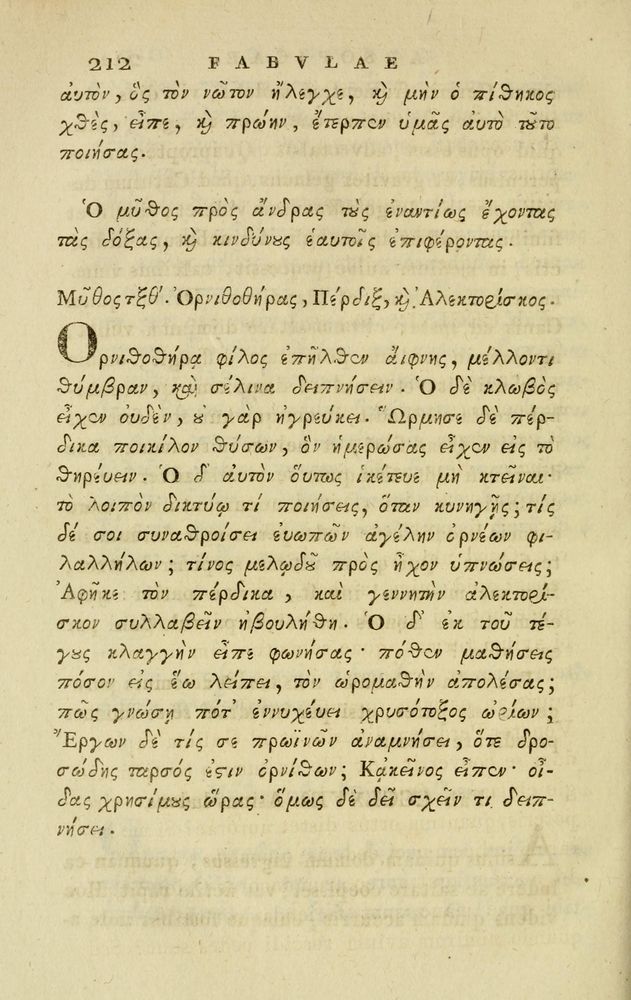 212 FABVLAE
αυτὸν, ὃς τὸν νῶτον ἤλεγχε, ϗ̀ μὴν ὁ πίθηκος
χθὲς, εἶπε, ϗ̀ πρώην, ἔτερπεν ὑμᾶς αὐτὸ τȣ͂το
ποιήσας.
Ὁ μῦθος πρὸς ἄνδρας τȣ̀ς ἐναντίως ἔχοντας
τὰς δόξας, ϗ̀ κινδύνȣς ἑαυτοῖς ἐπιφέροντας.
Μῦθος τξθʹ. Ὀρνιθοθήρας, Πέρδιξ, ϗ̀ Ἀλεκτορίσκος.
Ὀρνιθοθήρᾳ φίλος ἐπῆλθεν αἴφνης, μέλλοντι
θύμβραν, καὶ σέλινα δειπνήσειν. Ὁ δὲ κλωβὸς
εἶχεν ουδὲν, ȣ̓ γὰρ ἠγρεύκει. Ὥρμησε δὲ πέρ-
δικα ποικίλον θύσων, ὃν ἡμερώσας εἶχεν εἰς τὸ
θηρεύειν. Ὁ δ' αυτὸν ὅυτως ἱκέτευε μὴ κτεῖναι·
τὸ λοιπὸν δικτύῳ τί ποιήσεις, ὅταν κυνηγῇς; τίς
δέ σοι συναθροίσει ἐυωπῶν ἀγέλην ὀρνέων φι-
λαλλήλων; τίνος μελῳδȣ͂ πρὸς ἦχον ὑπνώσεις;
Ἀφῆκε τὸν πέρδικα, καὶ γεννητὴν ἀλεκτορί-
σκον συλλαβεῖν ἠβουλήθη. Ὁ δ' ἐκ τοῦ τέ-
γȣς κλαγγὴν εἶπε φωνήσας· πόθεν μαθήσεις
πόσον εἰς ἕω λείπει, τὸν ὡρομαθὴν ἀπολέσας;
πῶς γνώσῃ πότ' ἐννυχεύει χρυσότοξος ὠρίων;
Ἔργων δὲ τίς σε πρωϊνῶν ἀναμνήσει, ὅτε δρο-
σώδης ταρσός ἐστιν ὀρνίθων; Κἀκεῖνος εἶπεν· οἶ-
δας χρησίμȣς ὥρας· ὅμως δὲ δεῖ σχεῖν τι δειπ-
νήσει.